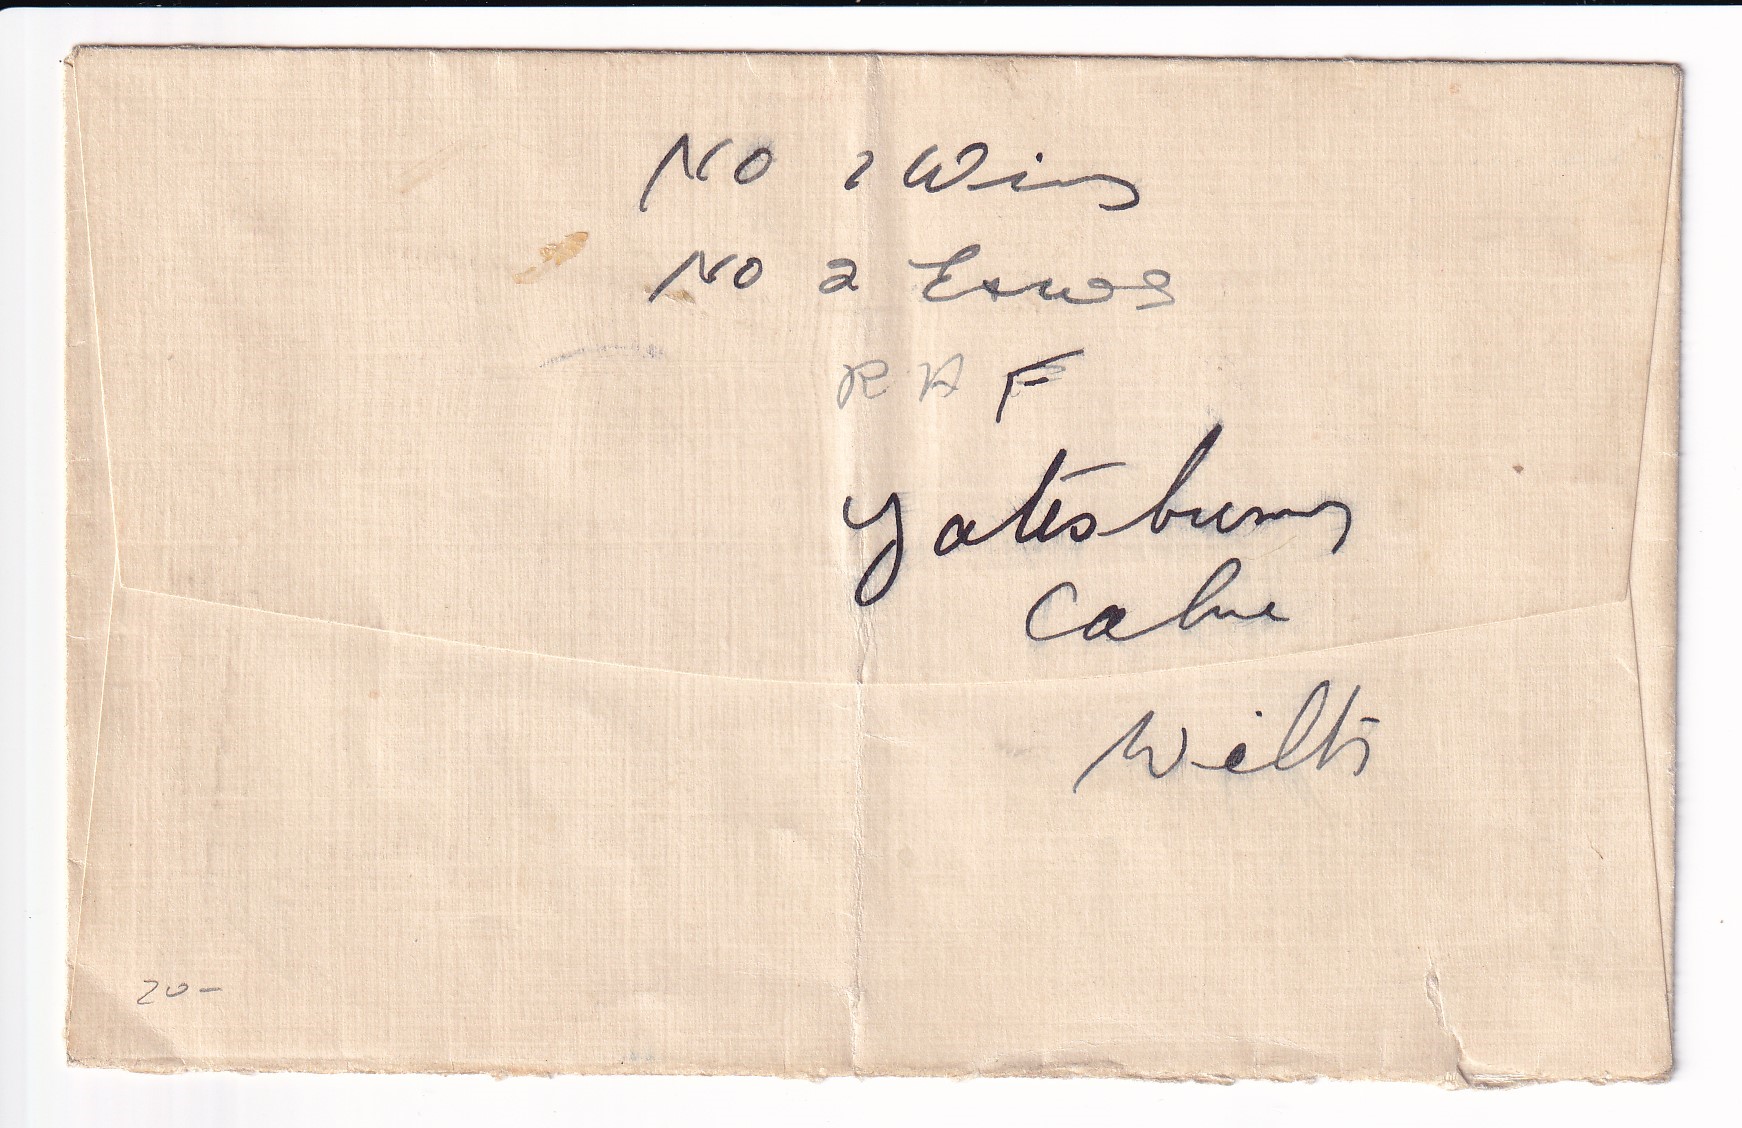 No 2 Wing
No 2 E&WS
RAF
Yatesbury
Calne
Wilts
20-